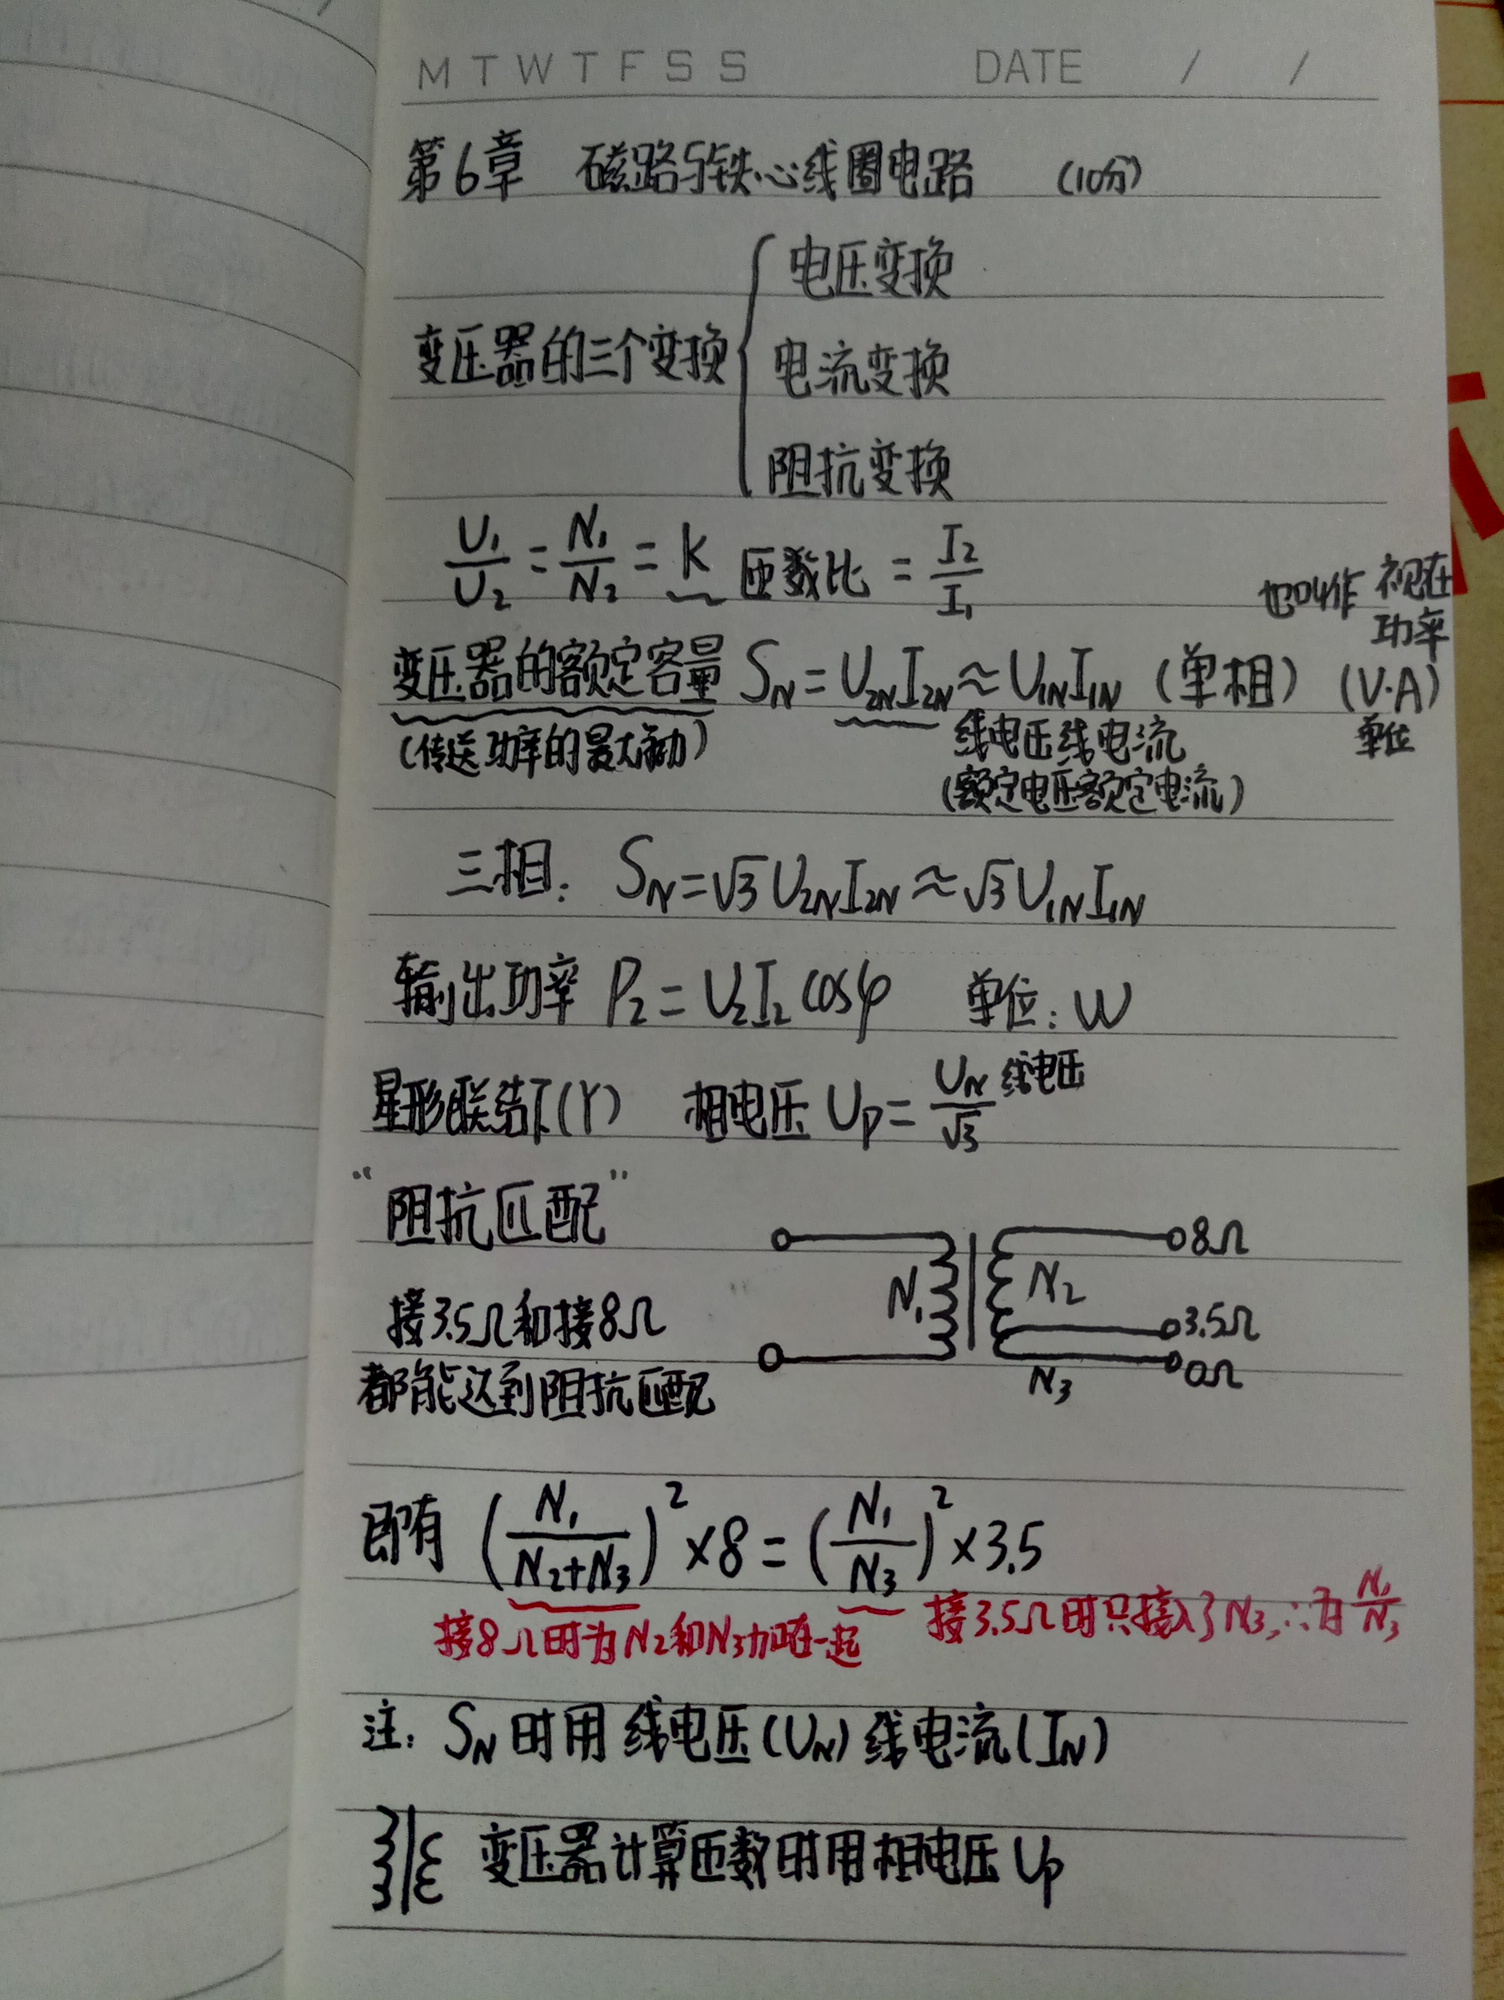 M T W T F S S DATE / /
第6章 磁路与铁心线圈电路 (10分)
变压器的三个变换 { 电压变换
电流变换
阻抗变换
U₁/U₂ = N₁/N₂ = K 匝数比 = I₂/I₁
也叫作 视在功率
变压器的额定容量 S_N = U_2N I_2N ≈ U_1N I_1N (单相) (V·A)
单位
(传送功率的最大能力)
线电压线电流
(额定电压额定电流)
三相: S_N = √3 U_2N I_2N ≈ √3 U_1N I_1N
输出功率 P₂ = U₂I₂ cosφ 单位: W
星形联结下(Y) 相电压 U_P = U_N/√3 线电压
“阻抗匹配”
接3.5Ω和接8Ω
都能达到阻抗匹配
N₁ N₂ N₃ 8Ω 3.5Ω 0Ω
即有 (N₁/(N₂+N₃))² ×8 = (N₁/N₃)² ×3.5
接8Ω时为N₂和N₃加在一起
接3.5Ω时只接入了N₃, ∴为 N₁/N₃
注: S_N 时用 线电压(U_N) 线电流(I_N)
变压器计算匝数时用相电压 U_P